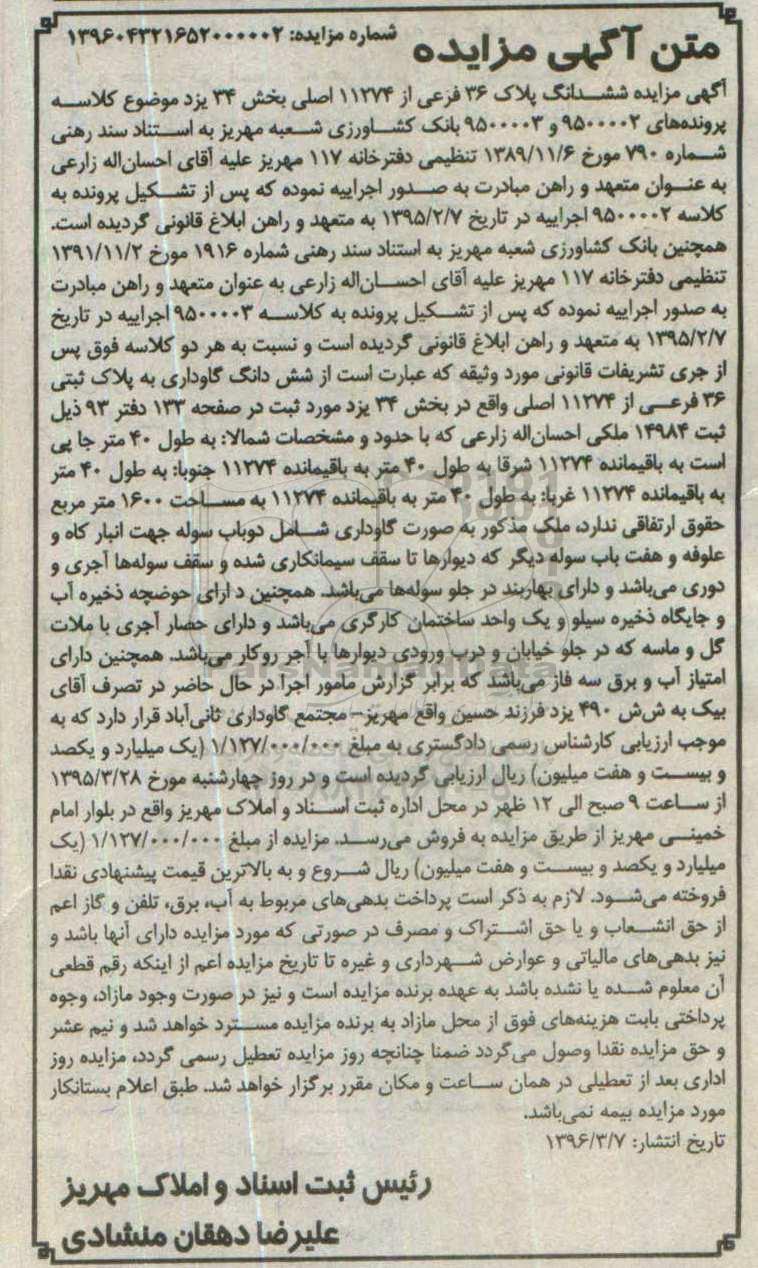 متن آگهی مزایده
شماره مزایده: ۱۳۹۶۰۴۳۲۱۶۵۲۰۰۰۰۰۲
آگهی مزایده ششدانگ پلاک ۳۶ فرعی از ۱۱۲۷۴ اصلی بخش ۳۴ یزد موضوع کلاسه
پرونده‌های ۹۵۰۰۰۰۲ و ۹۵۰۰۰۰۳ بانک کشاورزی شعبه مهریز به استناد سند رهنی
شماره ۷۹۰ مورخ ۱۳۸۹/۱۱/۶ تنظیمی دفترخانه ۱۱۷ مهریز علیه آقای احسان‌اله زارعی
به عنوان متعهد و راهن مبادرت به صدور اجراییه نموده که پس از تشکیل پرونده به
کلاسه ۹۵۰۰۰۰۲ اجراییه در تاریخ ۱۳۹۵/۲/۷ به متعهد و راهن ابلاغ قانونی گردیده است.
همچنین بانک کشاورزی شعبه مهریز به استناد سند رهنی شماره ۱۹۱۶ مورخ ۱۳۹۱/۱۱/۲
تنظیمی دفترخانه ۱۱۷ مهریز علیه آقای احسان‌اله زارعی به عنوان متعهد و راهن مبادرت
به صدور اجراییه نموده که پس از تشکیل پرونده به کلاسه ۹۵۰۰۰۰۳ اجراییه در تاریخ
۱۳۹۵/۲/۷ به متعهد و راهن ابلاغ قانونی گردیده است و نسبت به هر دو کلاسه فوق پس
از جری تشریفات قانونی مورد وثیقه که عبارت است از شش دانگ گاوداری به پلاک ثبتی
۳۶ فرعی از ۱۱۲۷۴ اصلی واقع در بخش ۳۴ یزد مورد ثبت در صفحه ۱۳۳ دفتر ۹۳ ذیل
ثبت ۱۴۹۸۴ ملکی احسان‌اله زارعی که با حدود و مشخصات شمالا: به طول ۴۰ متر جا پی
است به باقیمانده ۱۱۲۷۴ شرقا به طول ۴۰ متر به باقیمانده ۱۱۲۷۴ جنوبا: به طول ۴۰ متر
به باقیمانده ۱۱۲۷۴ غربا: به طول ۴۰ متر به باقیمانده ۱۱۲۷۴ به مساحت ۱۶۰۰ متر مربع
حقوق ارتفاقی ندارد، ملک مذکور به صورت گاوداری شامل دوباب سوله جهت انبار کاه و
علوفه و هفت باب سوله دیگر که دیوارها تا سقف سیمانکاری شده و سقف سوله‌ها آجری و
دوری می‌باشد و دارای بهاربند در جلو سوله‌ها می‌باشد. همچنین دارای حوضچه ذخیره آب
و جایگاه ذخیره سیلو و یک واحد ساختمان کارگری می‌باشد و دارای حصار آجری با ملات
گل و ماسه که در جلو خیابان و درب ورودی دیوارها با آجر روکار می‌باشد. همچنین دارای
امتیاز آب و برق سه فاز می‌باشد که برابر گزارش مامور اجرا در حال حاضر در تصرف آقای
بیک به ش‌ش ۴۹۰ یزد فرزند حسین واقع مهریز- مجتمع گاوداری ثانی‌آباد قرار دارد که به
موجب ارزیابی کارشناس رسمی دادگستری به مبلغ ۱/۱۲۷/۰۰۰/۰۰۰ (یک میلیارد و یکصد
و بیست و هفت میلیون) ریال ارزیابی گردیده است و در روز چهارشنبه مورخ ۱۳۹۵/۳/۲۸
از ساعت ۹ صبح الی ۱۲ ظهر در محل اداره ثبت اسناد و املاک مهریز واقع در بلوار امام
خمینی مهریز از طریق مزایده به فروش می‌رسد. مزایده از مبلغ ۱/۱۲۷/۰۰۰/۰۰۰ (یک
میلیارد و یکصد و بیست و هفت میلیون) ریال شروع و به بالاترین قیمت پیشنهادی نقدا
فروخته می‌شود. لازم به ذکر است پرداخت بدهی‌های مربوط به آب، برق، تلفن و گاز اعم
از حق انشعاب و یا حق اشتراک و مصرف در صورتی که مورد مزایده دارای آنها باشد و
نیز بدهی‌های مالیاتی و عوارض شهرداری و غیره تا تاریخ مزایده اعم از اینکه رقم قطعی
آن معلوم شده یا نشده باشد به عهده برنده مزایده است و نیز در صورت وجود مازاد، وجوه
پرداختی بابت هزینه‌های فوق از محل مازاد به برنده مزایده مسترد خواهد شد و نیم عشر
و حق مزایده نقدا وصول می‌گردد ضمنا چنانچه روز مزایده تعطیل رسمی گردد، مزایده روز
اداری بعد از تعطیلی در همان ساعت و مکان مقرر برگزار خواهد شد. طبق اعلام بستانکار
مورد مزایده بیمه نمی‌باشد.
تاریخ انتشار: ۱۳۹۶/۳/۷
رئیس ثبت اسناد و املاک مهریز
علیرضا دهقان منشادی